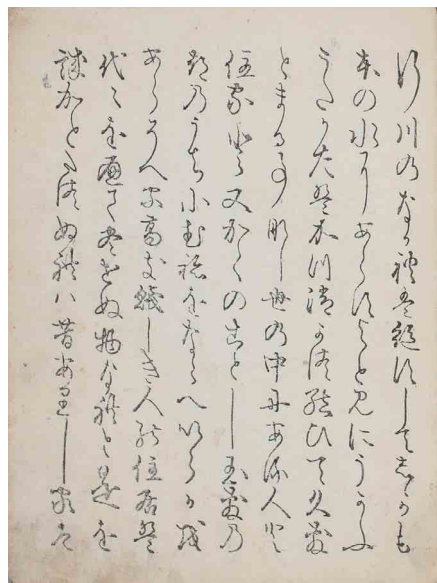 行川のなかれは絶すしてしかも
本の水にあらすよとみにうかふ
うたかたはかつ消かつ結ひて久敷
とまる事なし世の中にある人と
住家と又かくのことし玉敷の
都のうちにむねをならへいらかを
あらそへる高き賤しき人の住居は
代々をへて尽せぬ物なれと是を
誠かとたつぬれは昔ありし家は